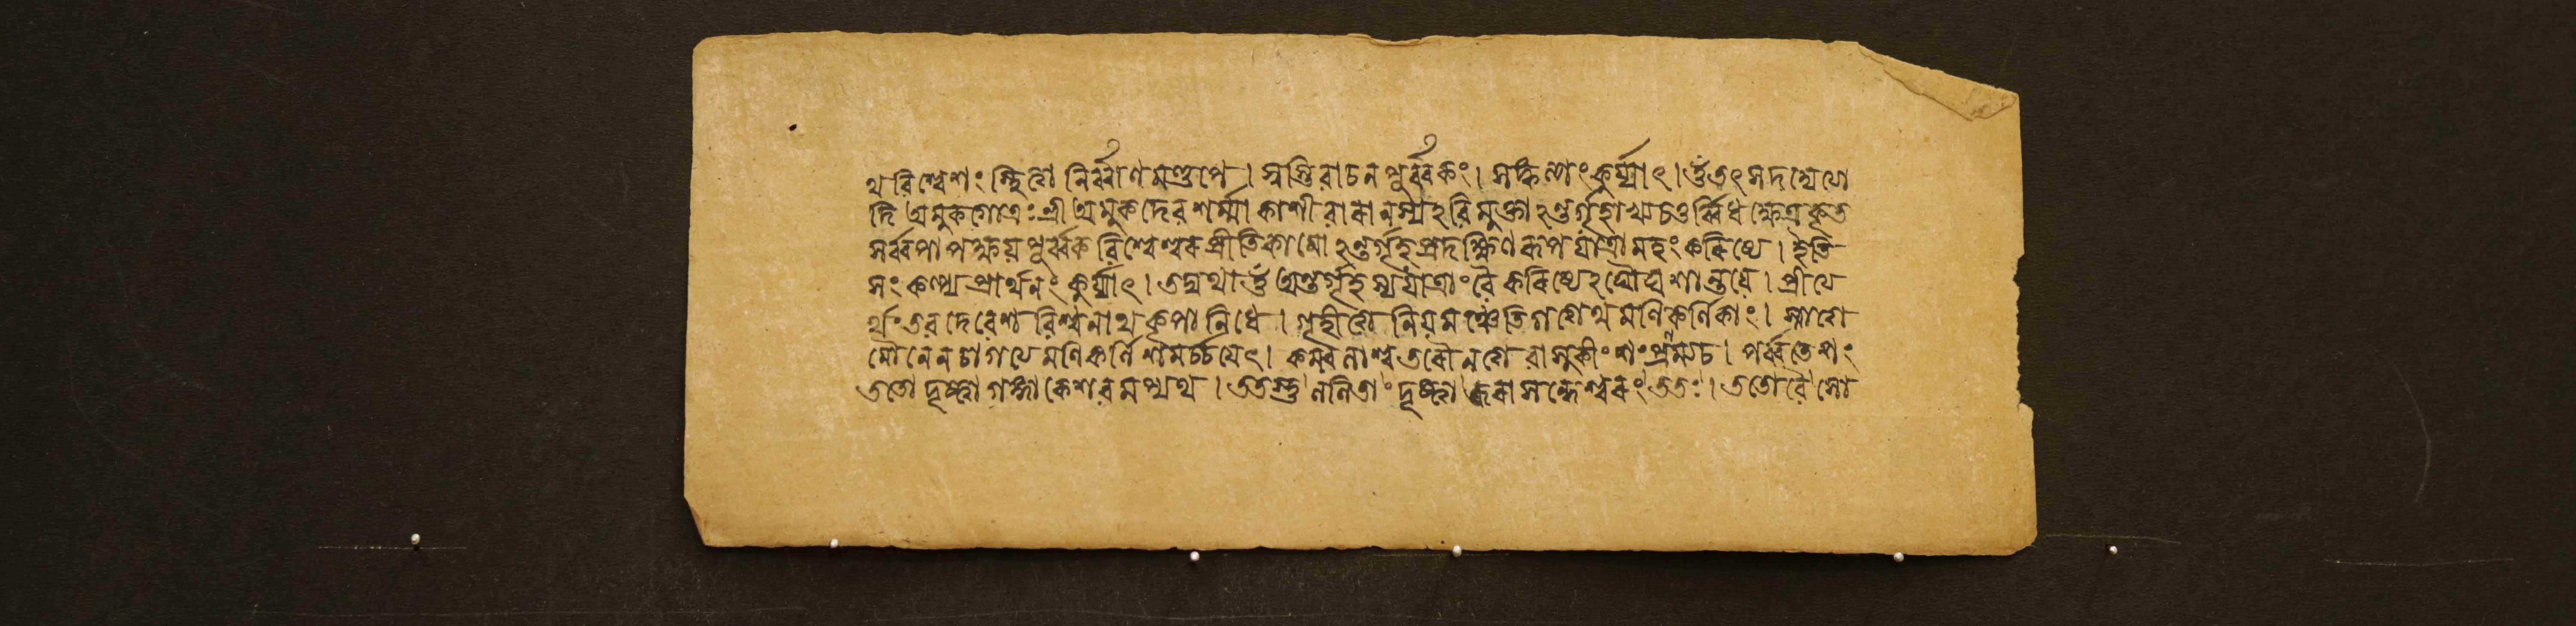 থ বিশ্বেশং স্থিত্বা নির্ব্বাণমণ্ডপে । স্বস্তিবাচনপূর্ব্বকং । সঙ্কল্পং কুর্য্যাৎ । ওঁ তৎসদদ্যেত্যা
দি অমুকগোত্রঃ শ্রীঅমুকদেবশর্ম্মা কাশীবারানস্যঽবিমুক্তাঽন্তর্গৃহাখ্যচতুর্ব্বিধক্ষেত্রকৃত
সর্ব্বপাপক্ষয়পূর্ব্বকবিশ্বেশ্বরপ্রীতিকামোঽন্তর্গৃহপ্রদক্ষিণরূপযাত্রামহং করিষ্যে । ইতি
সংকল্প্য প্রার্থনং কুর্য্যাৎ । তদ্যথা ওঁ অন্তর্গৃহস্য যাত্রাং বৈ করিষ্যেঽঘৌঘশান্তয়ে । প্রীত্য
র্থং তব দেবেশ বিশ্বনাথ কৃপানিধে । গৃহীত্বা নিয়মঞ্চেতি গত্বাথ মণিকর্ণিকাং । স্নাত্বা
মৌনেন চাগত্য মণিকর্ণীশমর্চ্চয়েৎ । কম্বলাশ্বতরৌ নত্বা বাসুকীশং প্রণম্য চ । পর্ব্বতেশং
ততো দৃষ্ট্বা গঙ্গাকেশবমপ্যথ । ততস্তু ললিতাং দৃষ্ট্বা জরাসন্ধেশ্বরং ততঃ । ততো বৈ সো